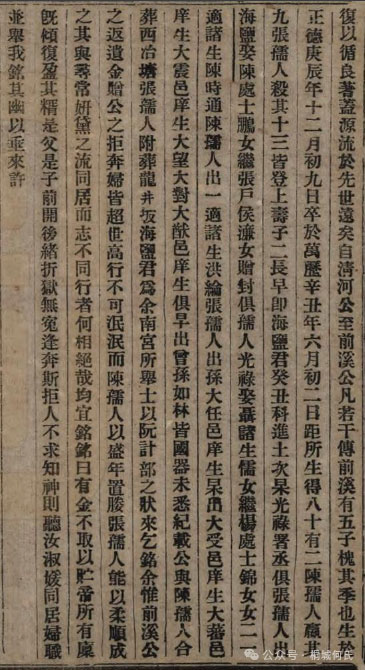 復以循良著蓋源流於先世遠矣自清河公至前溪公凡若干傳前溪有五子槐其季也生
正德庚辰年十二月初九日卒於萬曆辛丑年六月初二日距所生得八十有二陳孺人贏其
九張孺人殺其十三皆登上壽子二長早即海鹽君癸丑科進士次杲光祿署丞俱張孺人出
海鹽娶陳處士鵬女繼張戶侯濂女贈封俱孺人光祿娶聶諸生儒女繼楊處士錦女女二一
適諸生陳時通陳孺人出一適諸生洪綸張孺人出孫大任邑庠生杲出大受邑庠生大蕃邑
庠生大震邑庠生大望大對大猷邑庠生俱早出曾孫如林皆國器未悉紀載公與陳孺人合
葬西冶塘張孺人附葬龍井坂海鹽君為余南宮所舉士以阮計部之狀來乞銘余惟前溪公
之返遺金贈公之拒奔婦皆超世高行不可泯泯而陳孺人以盛年置媵張孺人能以柔順成
之其與尋常妍黛之流同居而志不同行者何相絕哉均宜銘銘曰有金不取以貯帝所有廩
既傾復盈其精是父是子前開後緒折獄無冤逢奔斯拒人不求知神則聽汝淑媛同居婦職
並舉我銘其幽以垂來許
公众号·桐城何氏